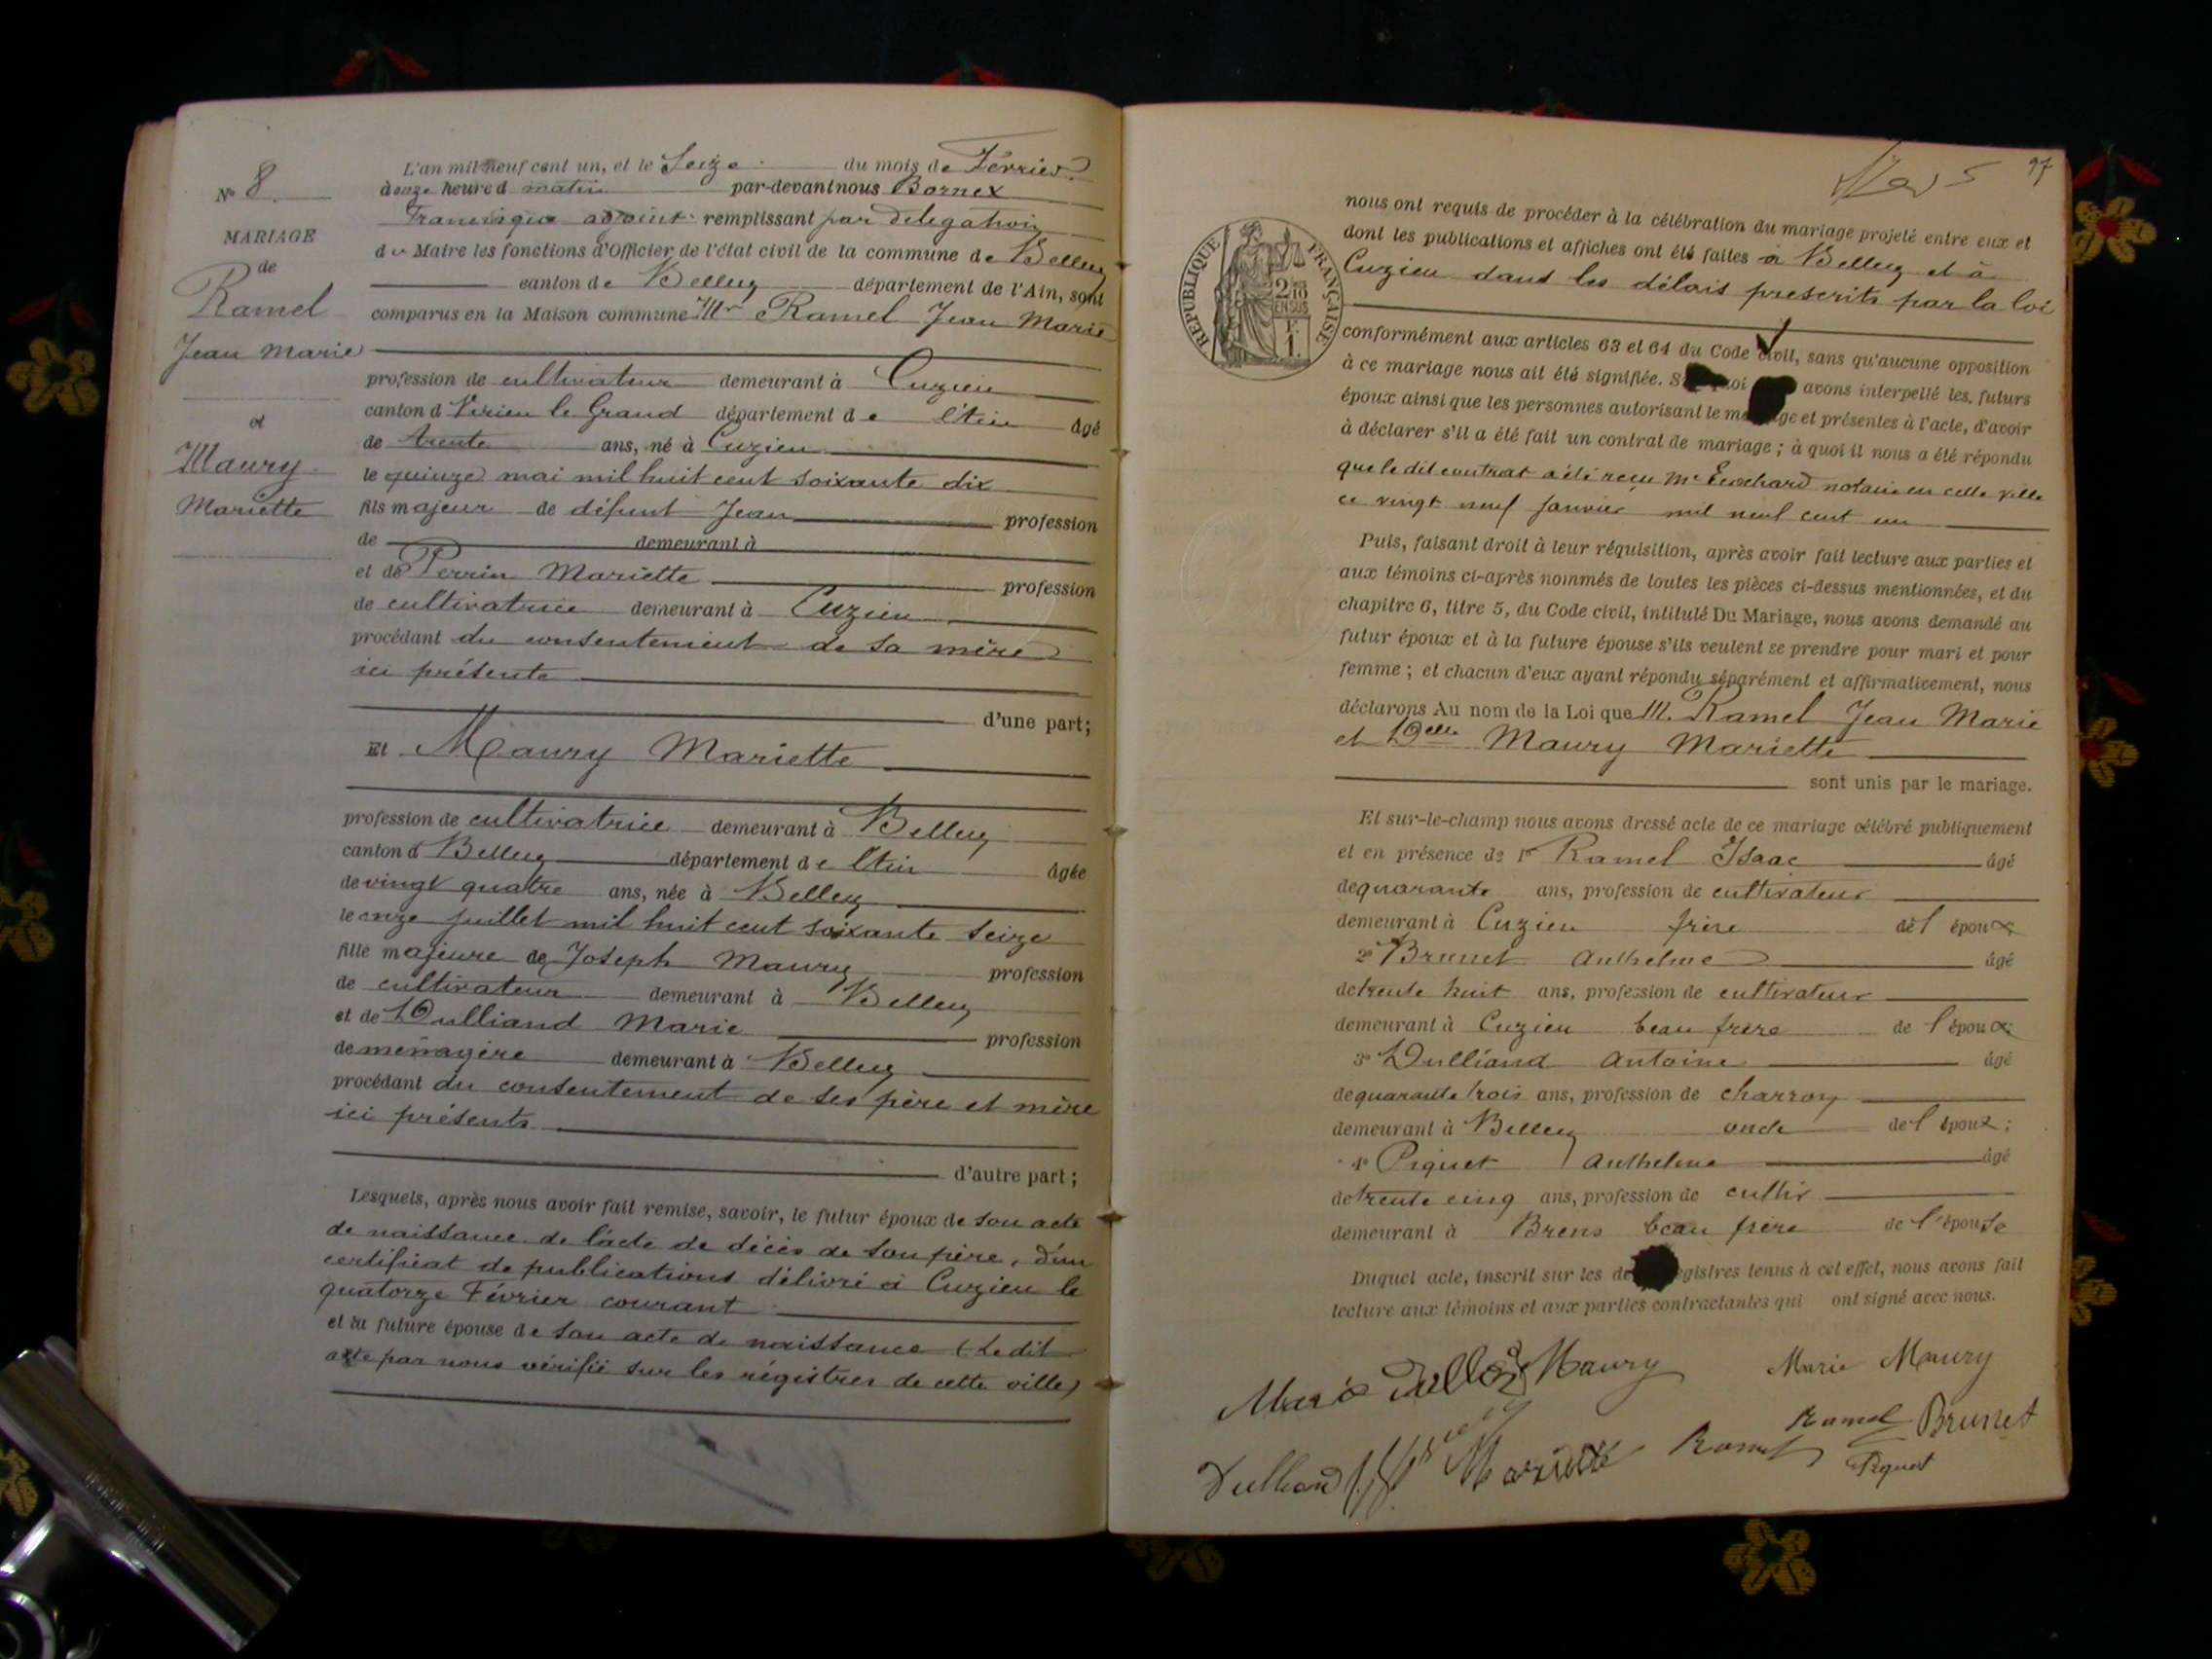 N° 8
MARIAGE
de
Ramel
Jean Marie
et
Maury
Mariette
L'an mil neuf cent un, et le Seize du mois de Février
à onze heures matin par-devant nous Bornex
Francisque adjoint remplissant par délégation
du Maire les fonctions d'Officier de l'état civil de la commune de Belley
canton de Belley département de l'Ain, sont
comparus en la Maison commune Mr Ramel Jean Marie
profession de cultivateur demeurant à Cuzieu
canton d Virieu le Grand département de l'Ain âgé
de trente ans, né à Cuzieu
le quinze mai mil huit cent soixante dix
fils majeur de défunt Jean profession
de demeurant à
et de Perrin Mariette profession
de cultivatrice demeurant à Cuzieu
procédant du consentement de sa mère
ici présente
d'une part;
Et Maury Mariette
profession de cultivatrice demeurant à Belley
canton d Belley département de l'Ain âgée
de vingt quatre ans, née à Belley
le onze juillet mil huit cent soixante seize
fille majeure de Joseph Maury profession
de cultivateur demeurant à Belley
et de Dulliand Marie profession
de ménagère demeurant à Belley
procédant du consentement de ses père et mère
ici présents
d'autre part;
Lesquels, après nous avoir fait remise, savoir, le futur époux de son acte
de naissance de l'acte de décès de son père, d'un
certificat de publications délivré à Cuzieu le
quatorze Février courant
et la future épouse de son acte de naissance (Le dit
acte par nous vérifié sur les régistres de cette ville)
97
RÉPUBLIQUE FRANÇAISE
2/10
EN SUS
1 F.
nous ont requis de procéder à la célébration du mariage projeté entre eux et
dont les publications et affiches ont été faites à Belley et à
Cuzieu dans les délais prescrits par la loi
conformément aux articles 63 et 64 du Code civil, sans qu'aucune opposition
à ce mariage nous ait été signifiée. S quoi avons interpellé les futurs
époux ainsi que les personnes autorisant le mariage et présentes à l'acte, d'avoir
à déclarer s'il a été fait un contrat de mariage; à quoi il nous a été répondu
que le dit contrat a été reçu Me notaire en cette ville
ce vingt neuf janvier mil neuf cent un
Puis, faisant droit à leur réquisition, après avoir fait lecture aux parties et
aux témoins ci-après nommés de toutes les pièces ci-dessus mentionnées, et du
chapitre 6, titre 5, du Code civil, intitulé Du Mariage, nous avons demandé au
futur époux et à la future épouse s'ils veulent se prendre pour mari et pour
femme; et chacun d'eux ayant répondu séparément et affirmativement, nous
déclarons Au nom de la Loi que M. Ramel Jean Marie
et Delle Maury Mariette
sont unis par le mariage.
Et sur-le-champ nous avons dressé acte de ce mariage célébré publiquement
et en présence de 1° Ramel Isaac âgé
de quarante ans, profession de cultivateur
demeurant à Cuzieu frère de l'époux
2° Brunet Anthelme âgé
de trente huit ans, profession de cultivateur
demeurant à Cuzieu beau frère de l'époux
3° Dulliand Antoine âgé
de quarante trois ans, profession de charron
demeurant à Belley oncle de l'épouse;
4° Piquet Anthelme âgé
de trente cinq ans, profession de cultiv
demeurant à Brens beau frère de l'épouse
Duquel acte, inscrit sur les de registres tenus à cet effet, nous avons fait
lecture aux témoins et aux parties contractantes qui ont signé avec nous.
Maury
Marie Maury
Ramel Brunet
Dulliand Mariette Ramel
Piquet